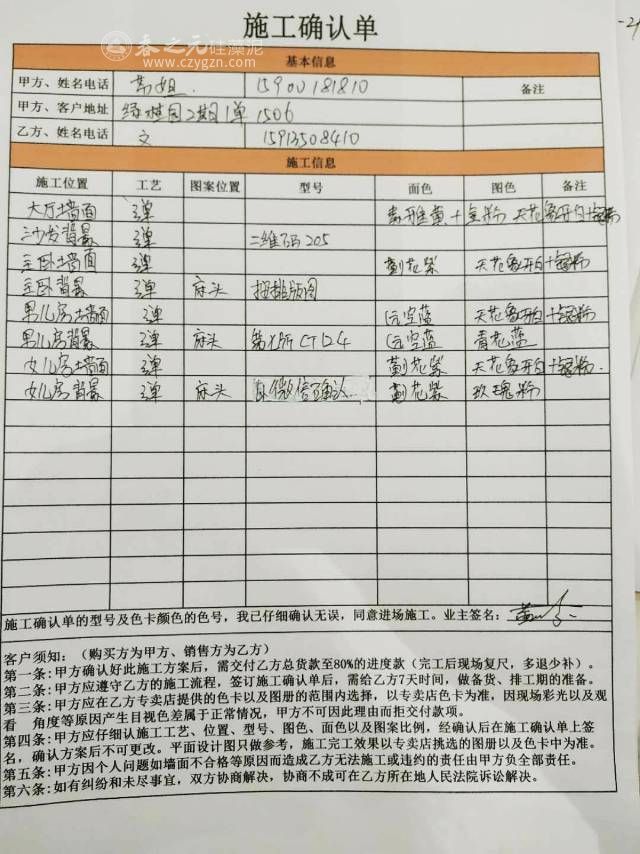 施工确认单
春之元硅藻泥
www.czygzn.com
基本信息
甲方、姓名电话 15900181810 备注
甲方、客户地址 2期1单1506
乙方、姓名电话 文 15913508410
施工信息
施工位置 工艺 图案位置 型号 面色 图色 备注
大厅墙面 弹 素雅黄+金粉 天花象牙白
沙发背景 弹 二维码205
主卧墙面 弹 紫 天花象牙白
主卧背景 弹 床头 按排版图
男儿房墙面 弹 天空蓝 天花象牙白
男儿房背景 弹 床头 CT124 天空蓝 青花蓝
女儿房墙面 弹 紫 天花象牙白
女儿房背景 弹 床头 微信确认 紫 玫瑰粉
施工确认单的型号及色卡颜色的色号，我已仔细确认无误，同意进场施工。业主签名：
客户须知：（购买方为甲方、销售方为乙方）
第一条：甲方确认好此施工方案后，需交付乙方总货款至80%的进度款（完工后现场复尺，多退少补）。
第二条：甲方应遵守乙方的施工流程，签订施工确认单后，需给乙方7天时间，做备货、排工期的准备。
第三条：甲方应在乙方专卖店提供的色卡以及图册的范围内选择，以专卖店色卡为准，因现场彩光以及观
看 角度等原因产生目视色差属于正常情况，甲方不可因此理由而拒交付款项。
第四条：甲方应仔细认施工工艺、位置、型号、图色、面色以及图案比例，经确认后在施工确认单上签
名，确认方案后不可更改。平面设计图只做参考，施工完工效果以专卖店挑选的图册以及色卡中为准。
第五条：甲方因个人问题如墙面不合格等原因而造成乙方无法施工或违约的责任由甲方负全部责任。
第六条：如有纠纷和未尽事宜，双方协商解决，协商不成可在乙方所在地人民法院诉讼解决。